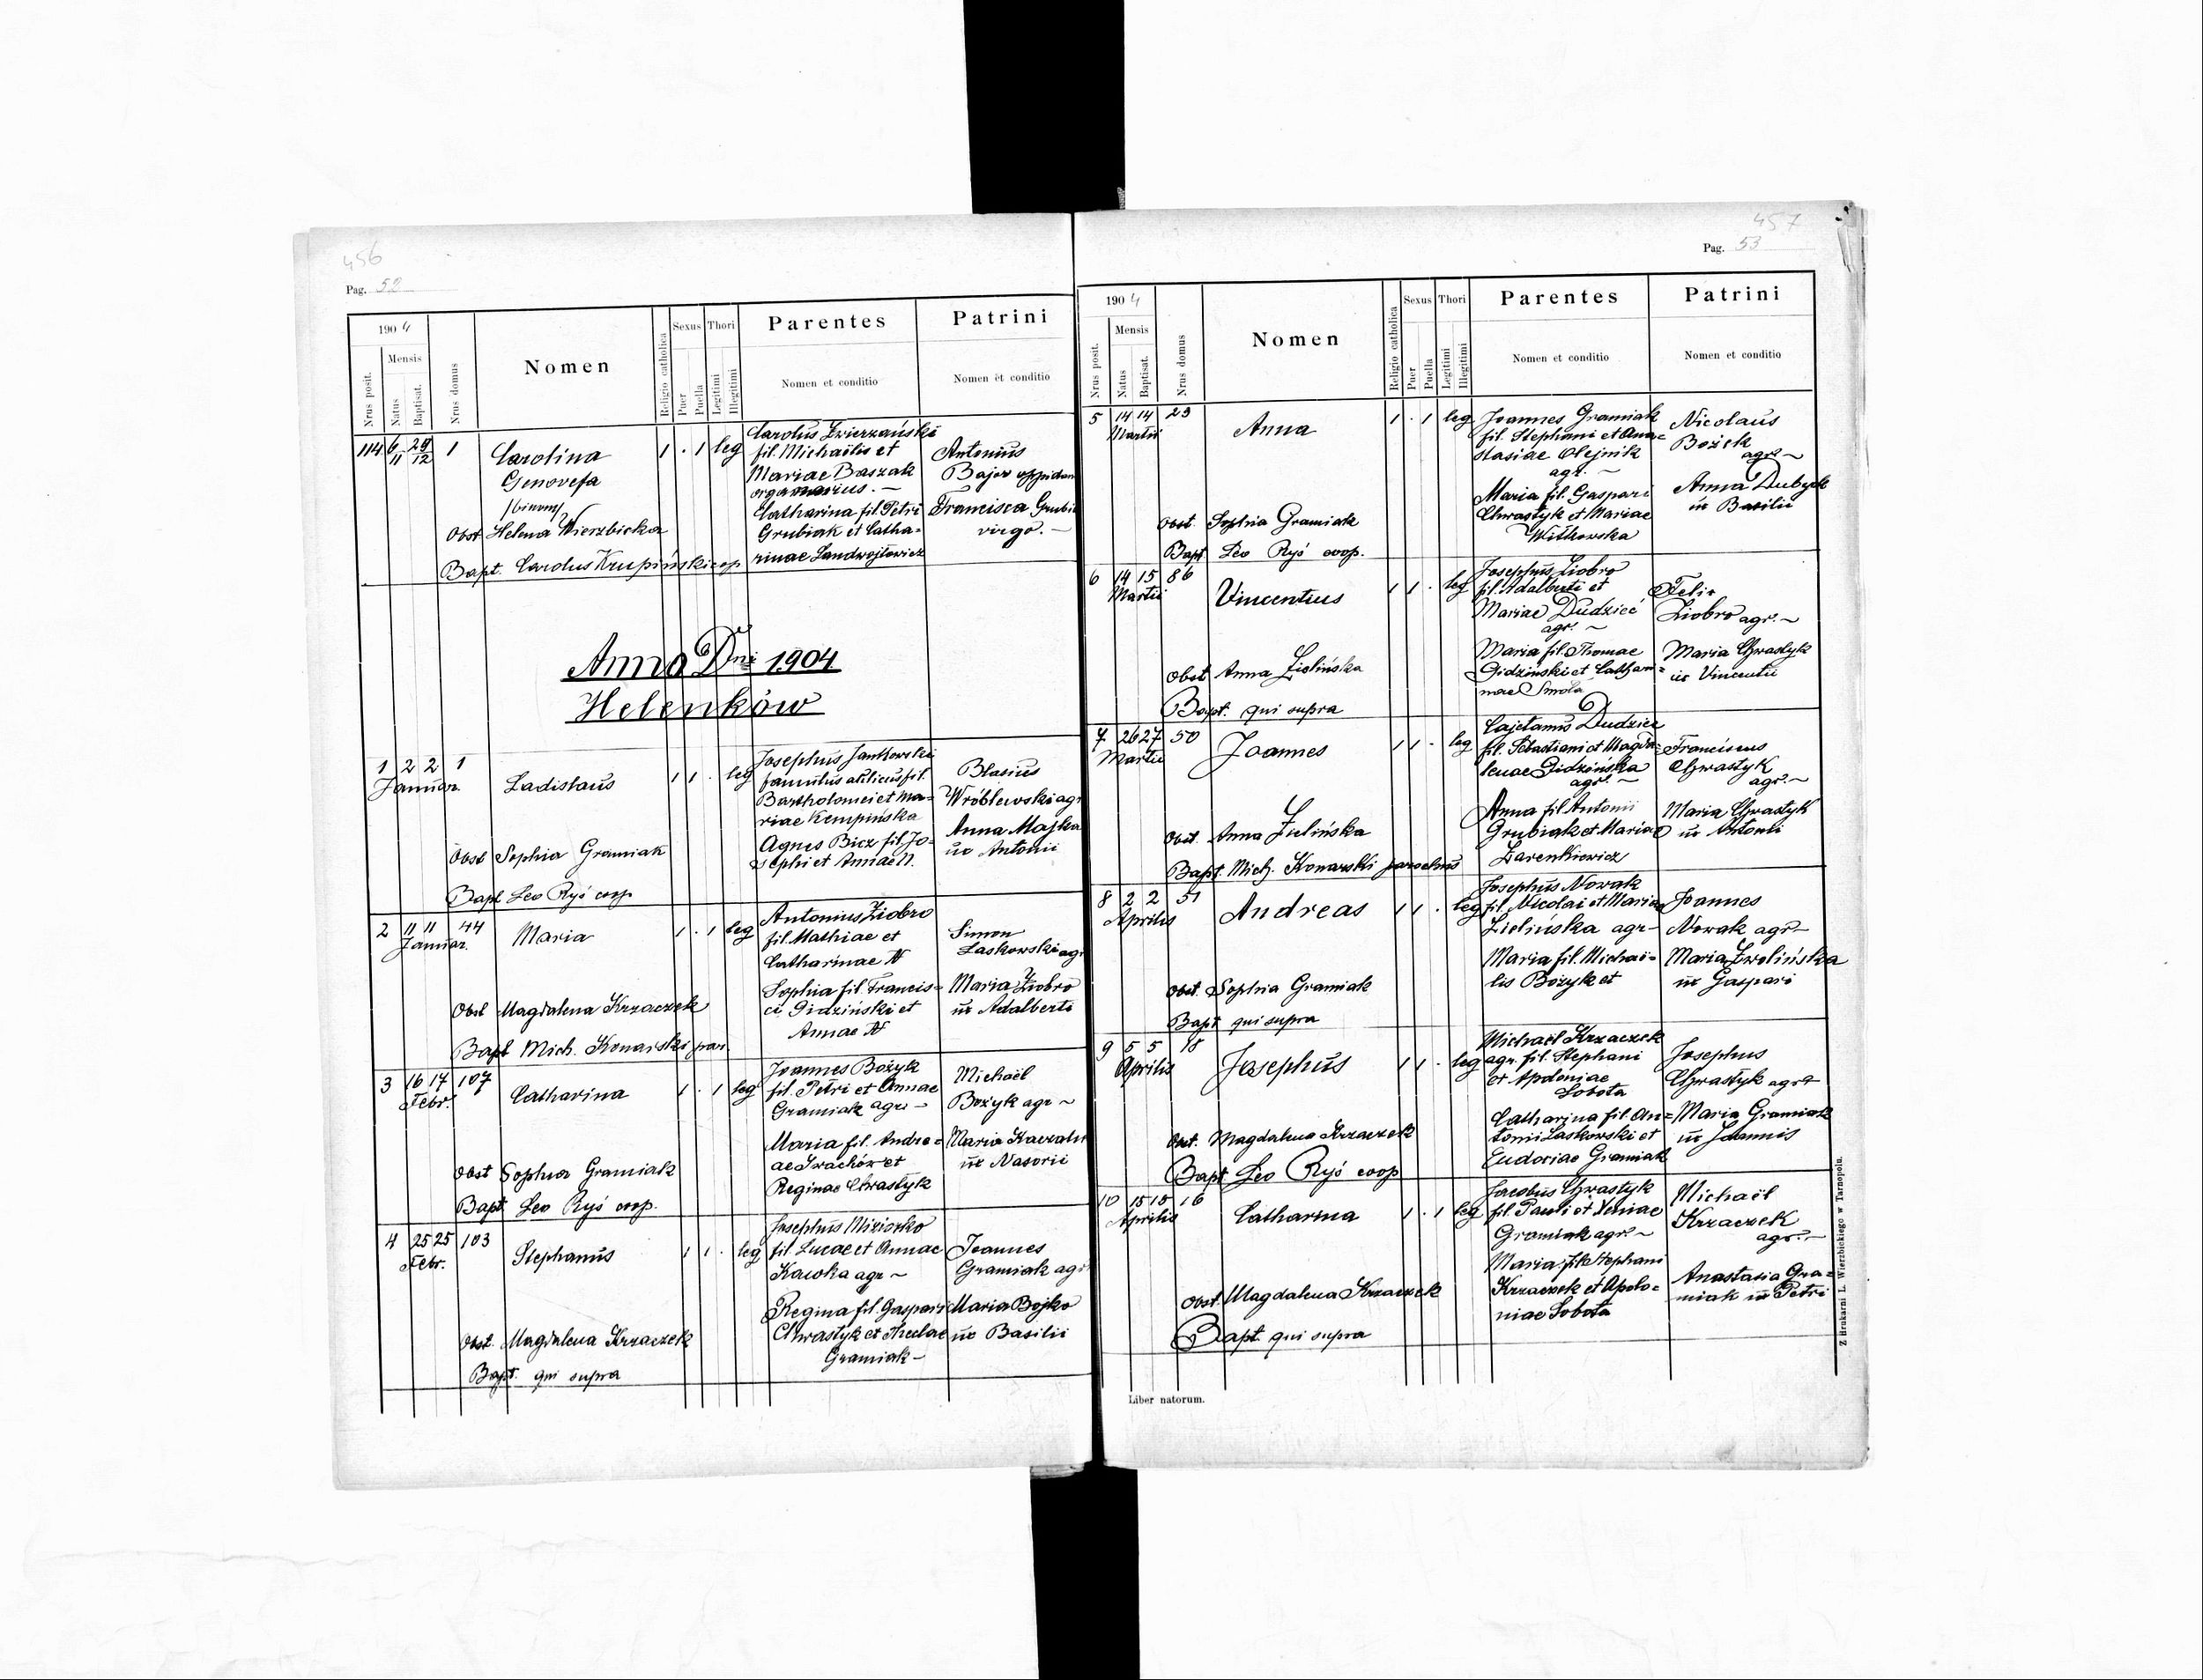 456
Pag. 52
1904
Mensis
Nrus posit.
Natus
Baptisat.
Nrus domus
Nomen
Religio catholica
Sexus
Puer
Puella
Thori
Legitimi
Illegitimi
Parentes
Nomen et conditio
Patrini
Nomen et conditio
114 6/11 29/12 1 Carolina 1 . 1 leg
Genovefa
/binom/
Obst Helena Wierzbicka
Bapt. Carolus Krupiński cop
Carolus Zwierzański
fil. Michaëlis et
Mariae Baszak
organarius. —
Catharina fil. Petri
Grubiak et Catha=
rinae Landwojtowicz
Antonius
Bajer oppidan
Francisca Grubi
virgo. —
Anno Dni 1904
Helenków
1 2 2 1 Ladislaus 1 1 . leg
Januar.
Obst Sophia Gramiak
Bapt Leo Ryś coop.
Josephus Jankowski
famulus aulicus fil.
Bartholomei et Ma=
riae Kempińska
Agnes Bicz fil. Jo=
sephi et Annae N.
Blasius
Wróblewski agr
Anna Majka
ux Antonii
2 11 11 44 Maria 1 . 1 leg
Januar.
Obst Magdalena Krzaczek
Bapt Mich. Konarski par.
Antonius Ziobro
fil. Mathiae et
Catharinae N
Sophia fil. Francis=
ci Gidziński et
Annae N
Simon
Laskowski ag
Maria Ziobro
ux Adalberti
3 16 17 107 Catharina 1 . 1 leg
Febr.
Obst Sophia Gramiak
Bapt Leo Ryś coop.
Joannes Bożyk
fil. Petri et Annae
Gramiak agr. —
Maria fil. Andre=
ae Iwachów et
Reginae Chrastyk
Michaël
Bożyk agr ~
Maria
ux Nasorii
4 25 25 103 Stephanus 1 1 . leg
Febr.
Obst. Magdalena Krzaczek
Bapt. qui supra
Josephus Miziorko
fil. Lucae et Annae
Kawka agr ~
Regina fil. Gaspari
Chrastyk et Theclae
Gramiak —
Joannes
Gramiak ag
Maria Bojko
ux Basilii
457
Pag. 53
1904
Mensis
Nrus posit.
Natus
Baptisat.
Nrus domus
Nomen
Religio catholica
Sexus
Puer
Puella
Thori
Legitimi
Illegitimi
Parentes
Nomen et conditio
Patrini
Nomen et conditio
5 14 14 23 Anna 1 . 1 leg
Martii
Obst. Sophia Gramiak
Bapt Leo Ryś coop.
Joannes Gramiak
fil. Stephani et Ana=
stasiae Olejnik
agr. ~
Maria fil. Gaspari
Chwastyk et Mariae
Witkowska
Nicolaus
Bożek
agr. ~
Anna Dubyk
ux Basilii
6 14 15 86 Vincentius 1 1 . leg
Martii
Obst Anna Zielińska
Bapt. qui supra
Josephus Ziobro
fil. Adalberti et
Mariae Dudzieć
agr. ~
Maria fil. Thomae
Gidziński et Cathari=
nae Smola
Felix
Ziobro agr. ~
Maria Chwastyk
ux Vincentii
7 26 27 50 Joannes 1 1 . leg
Martii
Obst. Anna Zielińska
Bapt Mich. Konarski parochus
Cajetanus Dudziec
fil. Sebastiani et Magda=
lenae Gidzińska
agr. ~
Anna fil. Antonii
Grubiak et Mariae
Zarenkiewicz
Franciscus
Chwastyk
agr. ~
Maria Chwastyk
ux Antonii
8 2 2 51 Andreas 1 1 . leg
Aprilis
Obst. Sophia Gramiak
Bapt qui supra
Josephus Nowak
fil. Nicolai et Mariae
Zielińska agr —
Maria fil. Michaë=
lis Bożyk et
Joannes
Nowak agr —
Maria Zwolińska
ux Gaspari
9 5 5 18 Josephus 1 1 . leg
Aprilis
Obst. Magdalena Krzaczek
Bapt Leo Ryś coop
Michaël Krzaczek
agr. fil. Stephani
et Apoloniae
Sobota
Catharina fil. An=
tonii Laskowski et
Eudociae Gramiak
Josephus
Chwastyk agr
Maria Gramiak
ux Joannis
10 15 15 16 Catharina 1 . 1 leg
Aprilis
Obst. Magdalena Krzaczek
Bapt qui supra
Jacobus Chwastyk
fil. Pauli et Xeniae
Gramiak agr. ~
Maria fil. Stephani
Krzaczek et Apolo=
niae Sobota
Michaël
Krzaczek
agr. —
Anastasia Gra=
miak ux Petri
Liber natorum.
Z drukarni L. Wierzbickiego w Tarnopolu.